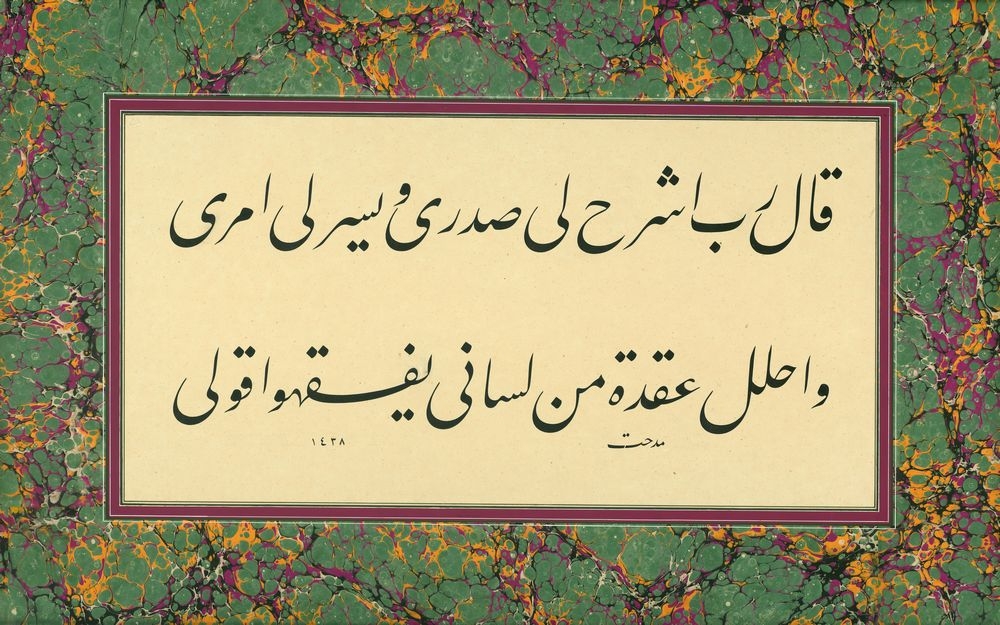 قال رب اشرح لی صدری و یسر لی امری
و احلل عقدة من لسانی یفقهوا قولی
مدحت
١٤٣٨